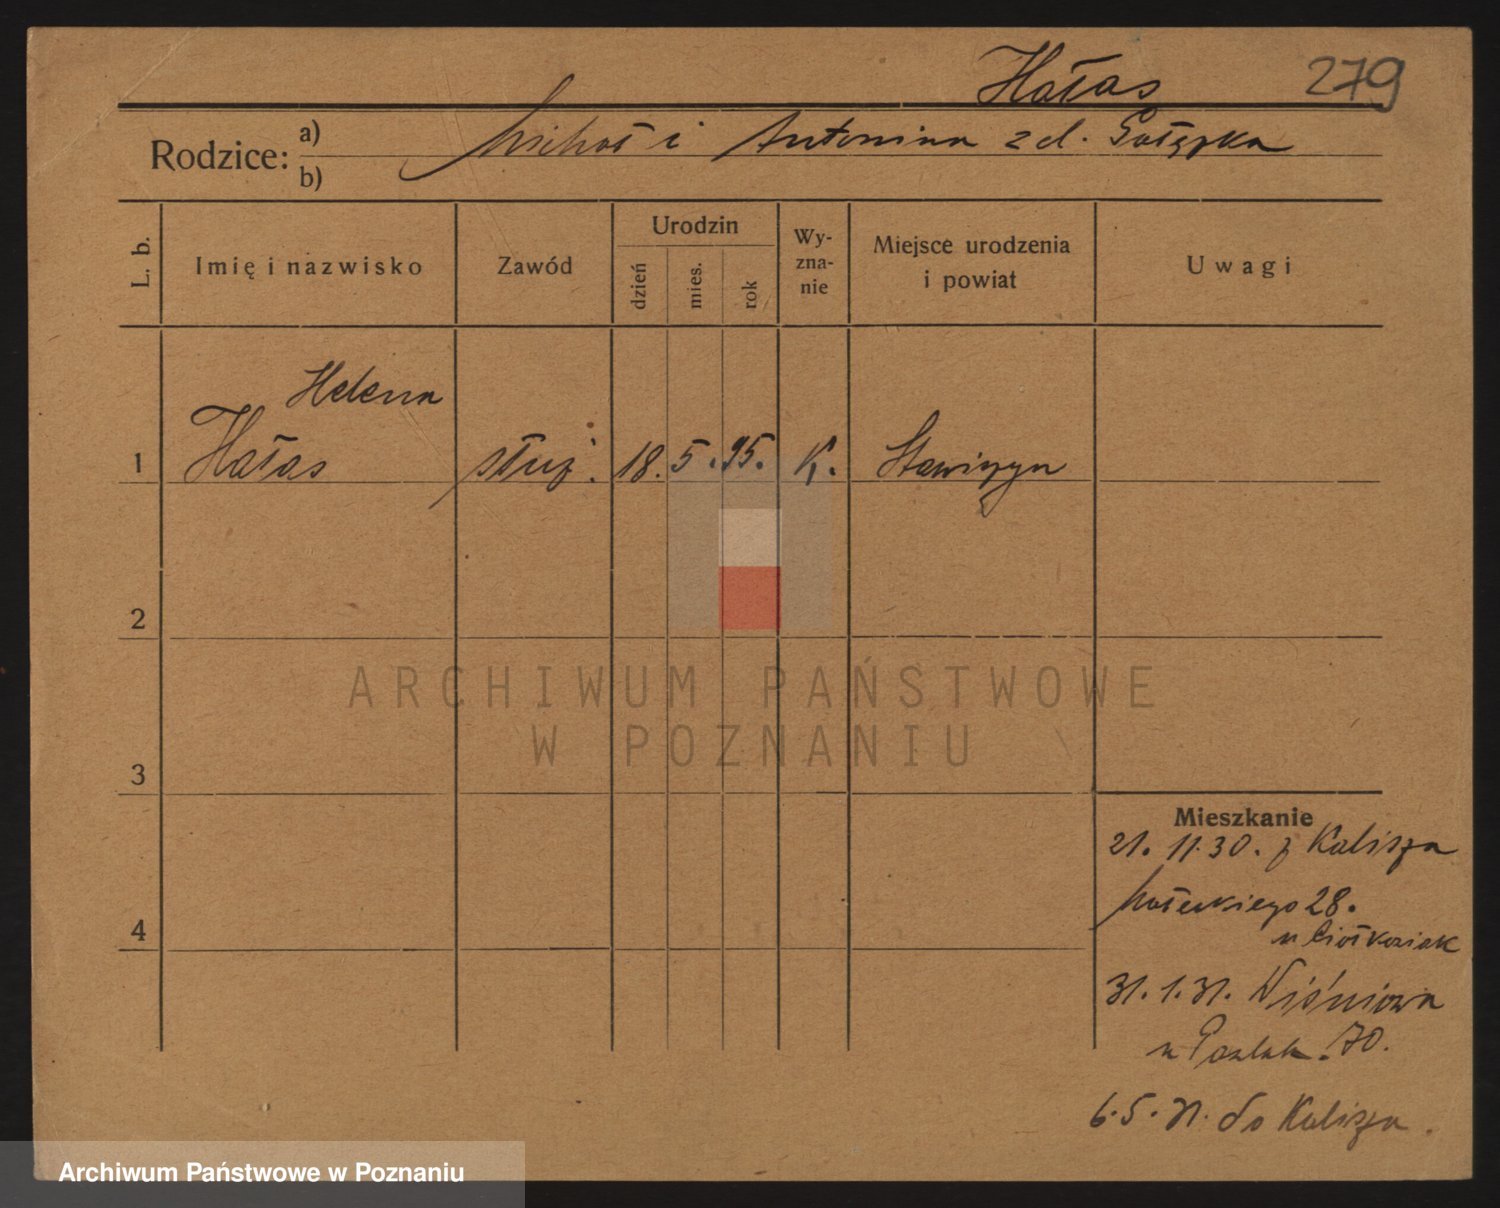 Hałas 279
Rodzice: a) Michał i Antonina z d.
b)
L. b. Imię i nazwisko Zawód Urodzin dzień mies. rok Wy-zna-nie Miejsce urodzenia i powiat Uwagi
Helena
1 Hałas służ. 18. 5. 95. K. Stawiszyn
2
ARCHIWUM PAŃSTWOWE
W POZNANIU
3
Mieszkanie
21. 11. 30. z Kalisza
Małeckiego 28.
4
u Ciołkosiak
31. 1. 31. Wiśniowa
u 70.
6. 5. 31. do Kalisza.
Archiwum Państwowe w Poznaniu